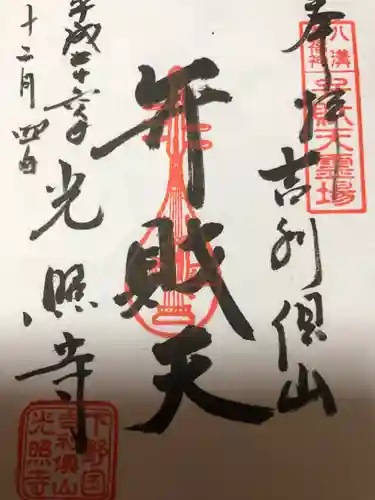 奉拝 吉利倶山
八溝
七福神
弁財天霊場
弁財天
平成二十六年
十二月四日
光照寺
下野国
吉利倶山
光照寺